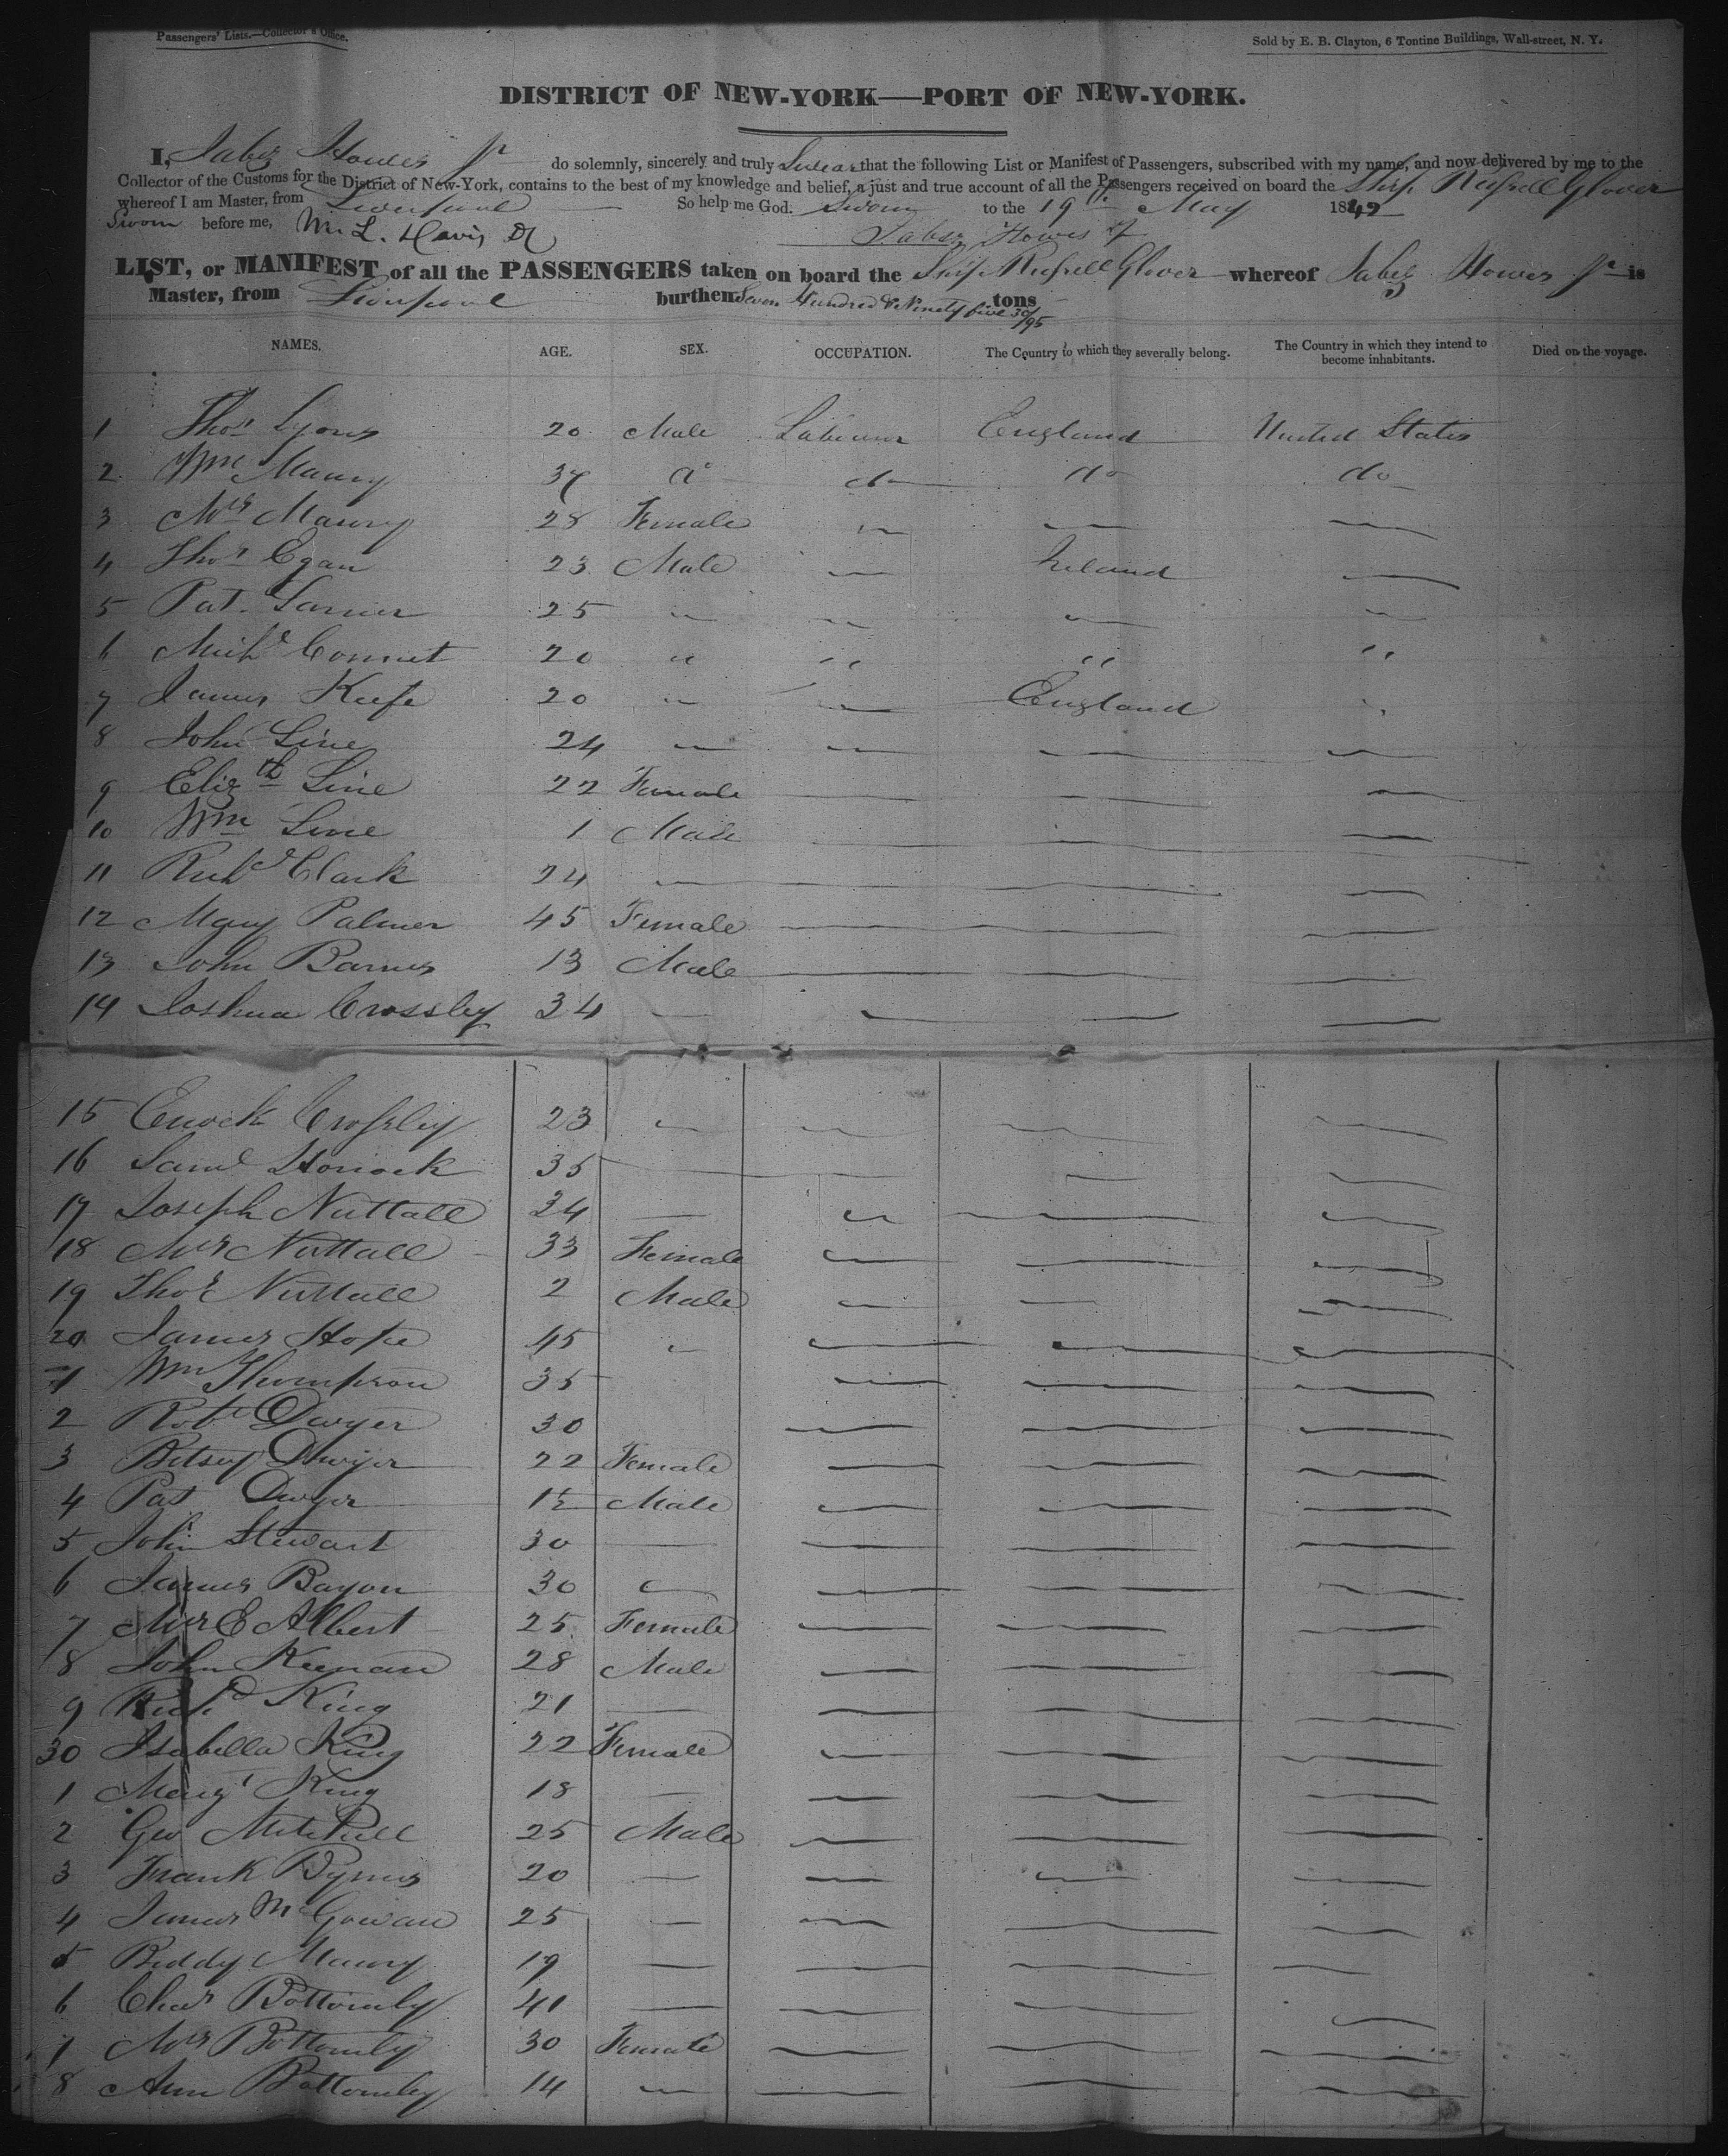 Passengers' Lists.—Collector's Office.
Sold by E. B. Clayton, 6 Tontine Buildings, Wall-street, N. Y.
DISTRICT OF NEW-YORK—PORT OF NEW-YORK.
I, Jabez Howes Jr do solemnly, sincerely and truly Swear that the following List or Manifest of Passengers, subscribed with my name, and now delivered by me to the
Collector of the Customs for the District of New-York, contains to the best of my knowledge and belief, a just and true account of all the Passengers received on board the Ship Russell Glover
whereof I am Master, from Liverpool So help me God. Sworn to the 19th May 1842
Sworn before me, M. L. Davis Jabez Howes Jr
LIST, or MANIFEST of all the PASSENGERS taken on board the Ship Russell Glover whereof Jabez Howes Jr is
Master, from Liverpool burthen Seven Hundred & Ninety five 30/95 tons
NAMES. AGE. SEX. OCCUPATION. The Country to which they severally belong. The Country in which they intend to become inhabitants. Died on the voyage.
1 Thos Lyons 20 Male Labourer England United States
2 Wm Maury 37 do do do do
3 Mrs Maury 28 Female
4 Thos Egan 23 Male Ireland
5 Pat. 25
6 Michl 20 " " " "
7 James Keefe 20 England
8 John Line 24
9 Elizth Line 22 Female
10 Wm Line 1 Male
11 Richd Clark 24
12 Mary Palmer 45 Female
13 John Barnes 13 Male
14 Joshua Crossley 34
15 Enock Crossley 23
16 Saml 35
17 Joseph Nuttall 34
18 Mrs Nuttall 33 Female
19 Thos Nuttall 2 Male
20 James Hope 45
1 Wm Thompson 35
2 Robt Dwyer 30
3 Betsey Dwyer 22 Female
4 Pat Dwyer 1½ Male
5 John Stewart 30
6 James Bayon 30
7 Mrs E Albert 25 Female
8 John Keenan 28 Male
9 Richd King 21
30 Isabella King 22 Female
1 Margt King 18
2 Geo Mitchell 25 Male
3 Frank Byrnes 20
4 James McGowan 25
5 Biddy Maury 19
6 Chas Bottomly 41
7 Mrs Bottomly 30 Female
8 Ann Bottomly 14